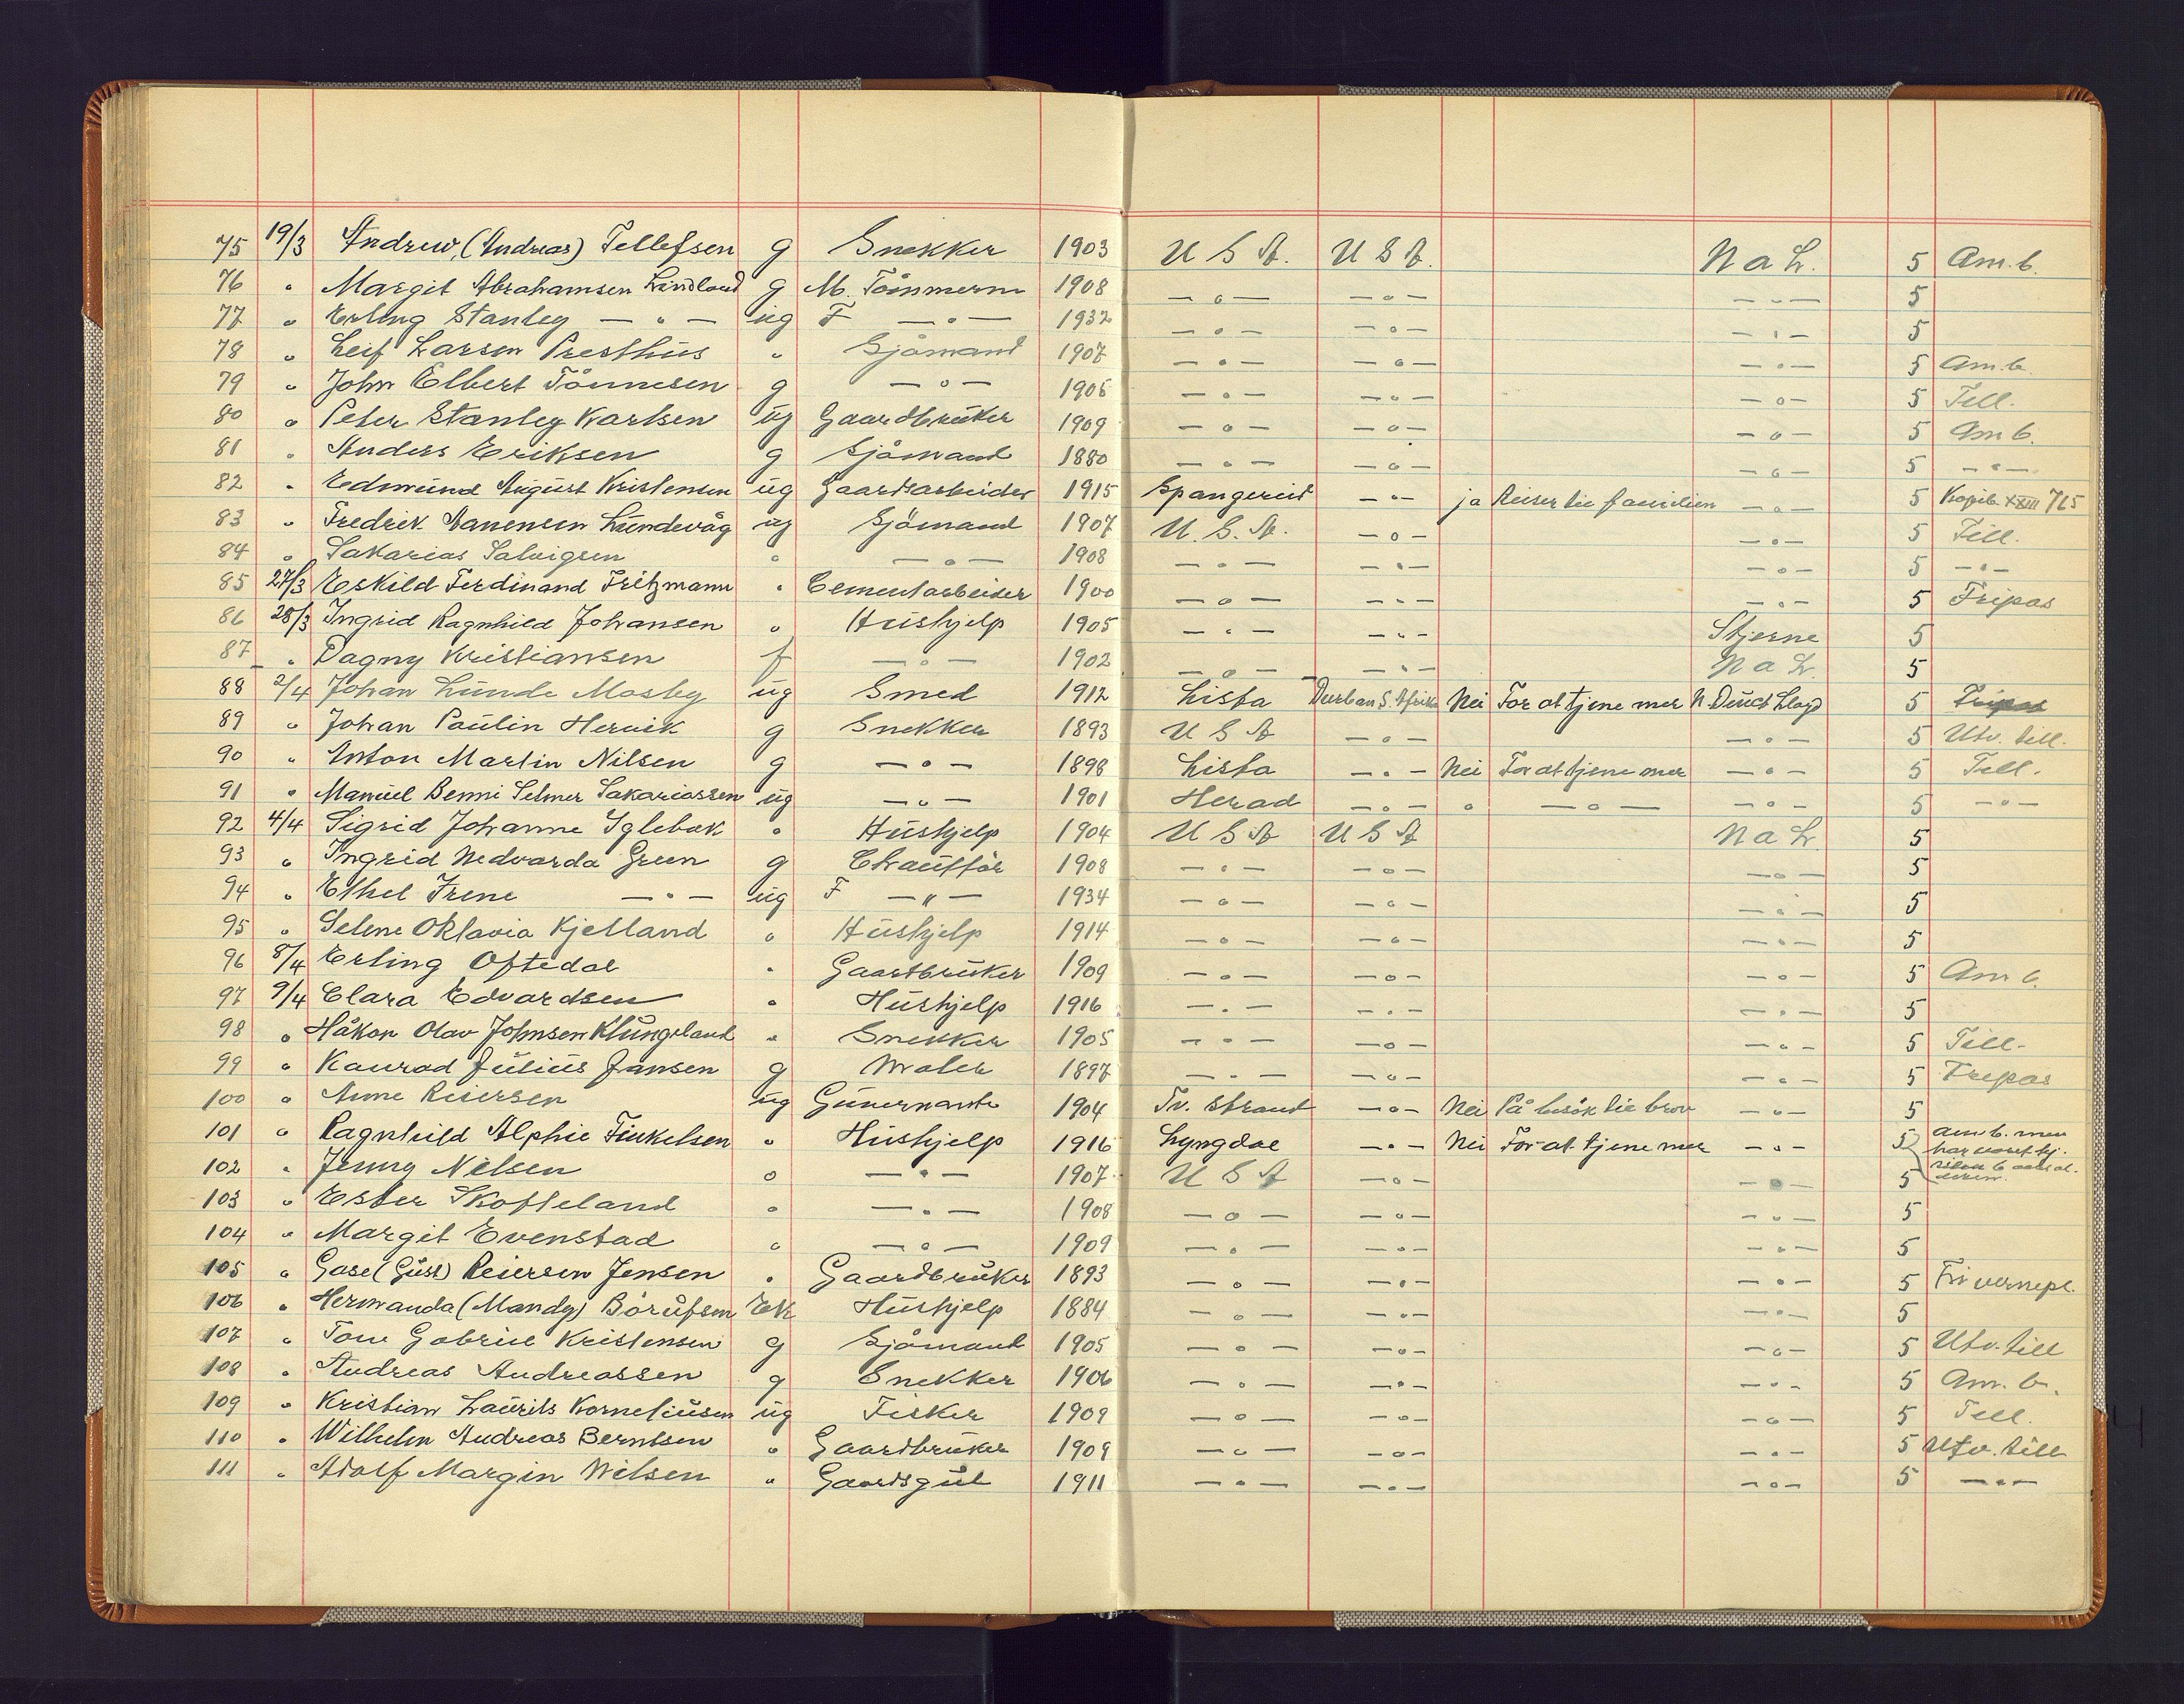 75 19/3 Andrew, (Andreas) Tellefsen g Snekker 1903 U S A. U S A. N a L. 5 Am. b.
76 " Margit Abrahamsen Lindland g M. Tömmerm 1908 — " — — " — — " — 5
77 " Erling Stanley — " — ug F — " — 1932 — " — — " — — " — 5
78 " Leif Larsen Presthus " Sjömand 1907 — " — — " — — " — 5 Am. b.
79 " John Elbert Tönnesen g — " — 1905 — " — — " — — " — 5 Till.
80 " Peter Stanley Karlsen ug Gaardbruker 1909 — " — — " — — " — 5 Am b.
81 " Anders Eriksen g Sjömand 1880 — " — — " — — " — 5 — " —
82 " Edmund August Kristensen ug Gaardsarbeider 1915 Spangereid — " — ja Reiser til familien — " — 5 Kopib XXIII 765
83 " Fredrik Aanensen Lundevåg ug Sjömand 1907 U. S. A. — " — — " — 5 Till.
84 " Sakarias Salvigsen " — " — 1908 — " — — " — — " — 5 — " —
85 27/3 Eskild Ferdinand Fritzmann " Cementarbeider 1900 — " — — " — — " — 5 Fripas
86 28/3 Ingrid Ragnhild Johansen " Hushjelp 1905 — " — — " — Stjerne 5
87 " Dagny Kristiansen f — " — 1902 — " — — " — N a L. 5
88 2/4 Johan Lunde Mosby ug Smed 1912 Lista Durban S. Afrika Nei For at tjene mer N. Deuct Loyd 5 Fripas
89 " Johan Paulin Hervik g Snekker 1893 U S A — " — — " — 5 Utv. till.
90 " Anton Martin Nilsen g — " — 1898 Lista — " — Nei For at tjene mer — " — 5 Till.
91 " Manuel Benni Selmer Sakariassen ug — " — 1901 Herad — " — " — " — — " — 5 — " —
92 4/4 Sigrid Johanne Iglebæk " Hushjelp 1904 U S A U S A N a L 5
93 " Ingrid Nedvarda Green g Chaufför 1908 — " — — " — — " — 5
94 " Ethel Irene — " — ug F — " — 1934 — " — — " — — " — 5
95 " Selene Oktavia Kjelland " Hushjelp 1914 — " — — " — — " — 5
96 8/4 Erling Oftedal " Gaardbruker 1909 — " — — " — — " — 5 Am b.
97 9/4 Clara Edvardsen " Hushjelp 1916 — " — — " — — " — 5
98 " Håkon Olav Johnsen Klungeland " Snekker 1905 — " — — " — — " — 5 Till.
99 " Konrad Julius Jansen g Maler 1897 — " — — " — — " — 5 Fripas
100 " Anne Reiersen ug Guvernante 1904 Tv. strand — " — Nei På besök til bror — " — 5
101 " Ragnhild Alphie Finkelsen " Hushjelp 1916 Lyngdal — " — Nei For at tjene mer — " — 5 Am b. men har været
102 " Jenny Nilsen " — " — 1907 U S A — " — — " — 5
103 " Ester Skofteland " — " — 1908 — " — — " — — " — 5
104 " Margit Evenstad " — " — 1909 — " — — " — — " — 5
105 " Gose (Gust) Reiersen Jensen " Gaardbruker 1893 — " — — " — — " — 5 Fri vernepl.
106 " Hermanda (Mandy) Börufsen Ek Hushjelp 1884 — " — — " — — " — 5
107 " Tom Gabriel Kristensen g Sjömand 1905 — " — — " — — " — 5 Utv. till
108 " Andreas Andreassen g Snekker 1906 — " — — " — — " — 5 Am. b.
109 " Kristian Laurits Korneliusen ug Fisker 1909 — " — — " — — " — 5 Till.
110 " Wilhelm Andreas Berntsen " Gaardbruker 1909 — " — — " — — " — 5 Utv. till
111 " Adolf Margin Nilsen " Gaardsgut 1911 — " — — " — — " — 5 — " —